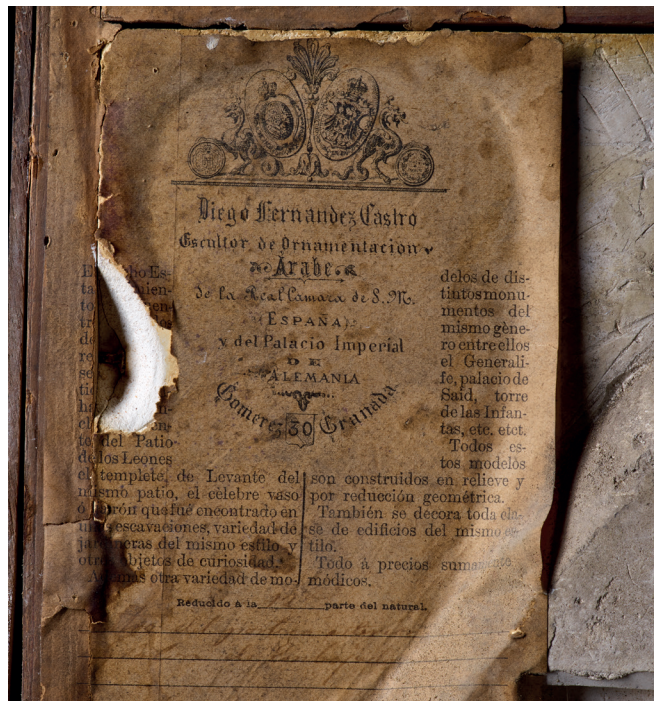 Diego Fernandez Castro
Escultor de Ornamentacion
Árabe
de la Real Camara de S. M.
(ESPAÑA)
y del Palacio Imperial
DE
ALEMANIA
Gomerez 30 Granada
Es-
del Patio
de los Leones
el templete, de Levante del
mismo patio, el célebre vaso
ó jarrón que fué encontrado en
escavaciones, variedad de
del mismo estilo y
objetos de curiosidad.
otra variedad de mo-
delos de dis-
tintos monu-
mentos del
mismo gène-
ro entre ellos
el Generali-
fe, palacio de
Said, torre
de las Infan-
tas, etc. etct.
Todos es-
tos modelòs
son construidos en relieve y
por reducción geométrica.
También se decora toda cla-
se de edificios del mismo es-
tilo.
Todo à precios
módicos.
Reducido à la parte del natural.